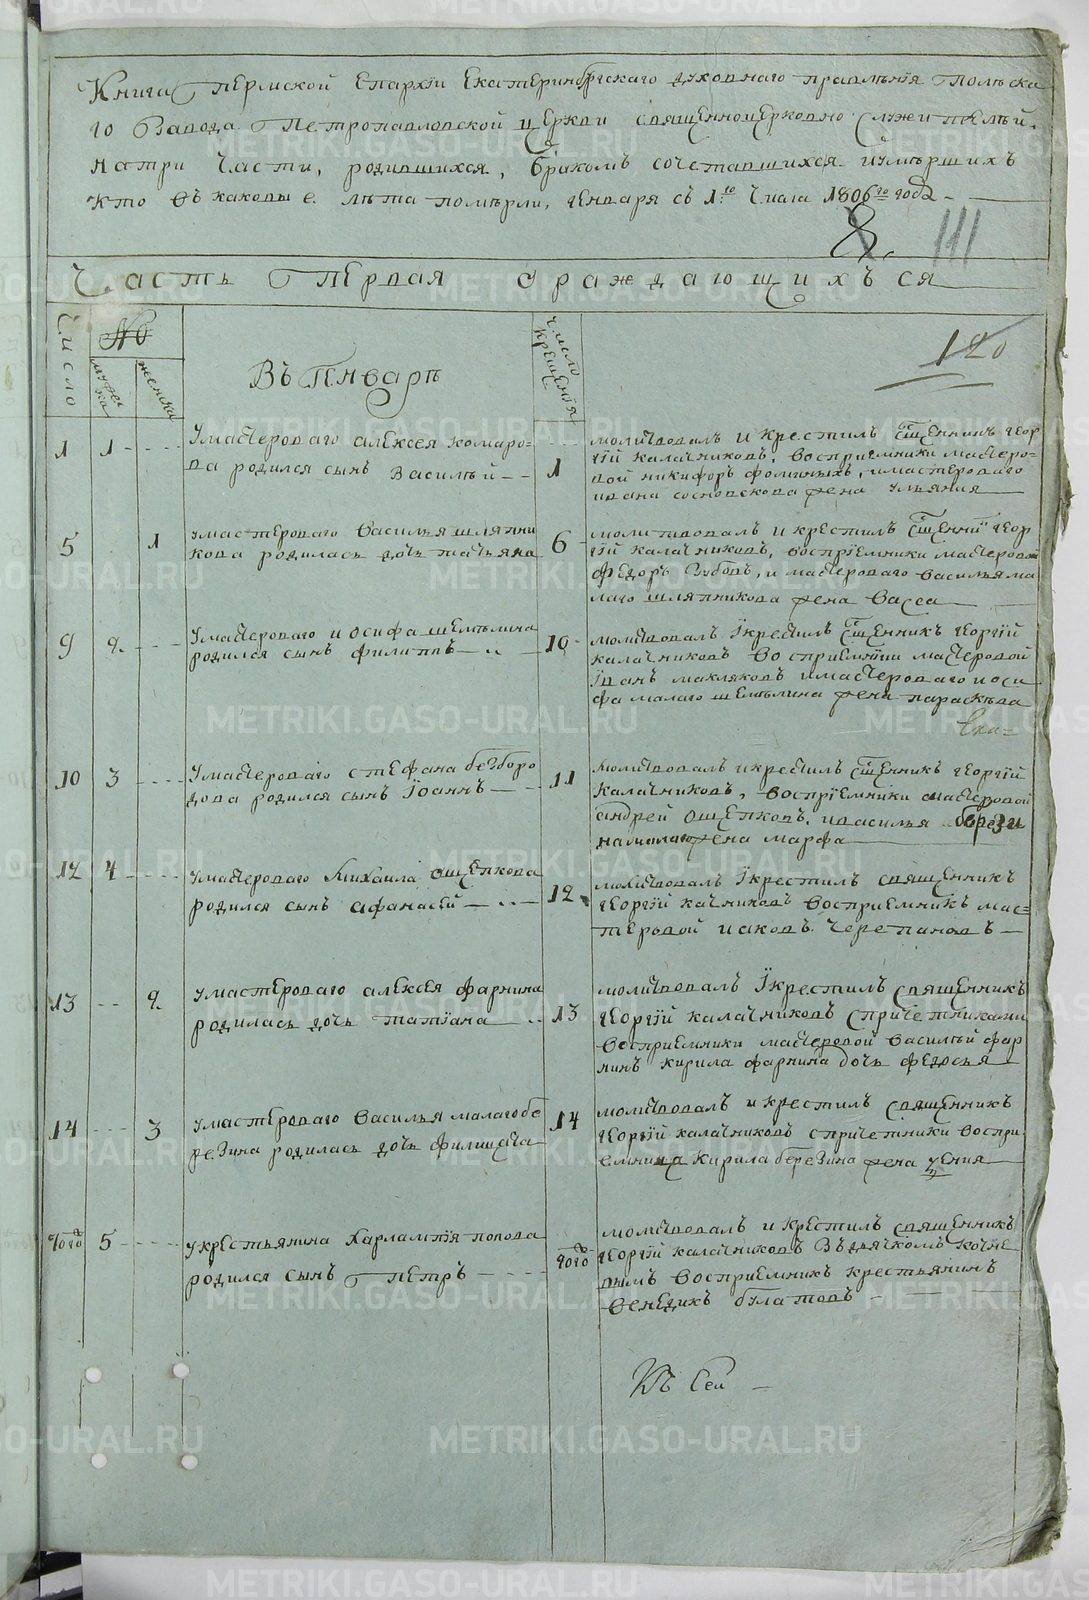 Книга Пермской Епархїи Екатеринбургскаго духовнаго правленїя Полевска
го Завода Петропавловской церкви священноцерковно служителей,
на три части, родившихся, браком сочетавшихся и умершихъ
кто въ каковы е. лета померли, генваря съ 1го числа 1806го года
8. 111
Часть Первая о раждающихъся
120
Число № мужеска женска Въ Генваре число крещенїя
1 1 У мастероваго алексея комаро=
ва родился сынъ Василей 1
молитвовалъ и крестилъ Сщенникъ геор
гїй калачниковъ, восприемники мастеро=
вой никифоръ фоминыхъ, и мастероваго
ивана сосновскова жена Ульяния
5 1 У мастероваго Василья шляпни
кова родилась дочь татьяна 6
молитвовалъ и крестилъ Сщенникъ геор
гїй калачниковъ, воспрїемники мастеровой
федоръ Зубовъ, и мастероваго василья ма
лаго шляпникова жена васса
9 2 У мастероваго иосифа шемелина
родился сынъ филиппъ 10
молитвовалъ ї крестилъ Сщенникъ георгїй
калачниковъ восприемники мастеровой
їванъ макляковъ и мастероваго иоси
фа малаго шемелина жена параскева
10 3 У мастероваго стефана безборо
дова родился сынъ їоаннъ 11
молитвовалъ и крестилъ Сщенникъ георгїй
калачниковъ, воспрїемники мастеровой
андрей ощепковъ, и василья берези
на малаго жена марфа
12 4 У мастероваго михаила ощепкова
родился сынъ афанасей 12
молитвовалъ ї крестилъ священникъ
георгїй качниковъ восприемникъ мас=
теровой иаковъ черепановъ
13 2 У мастероваго алексея фарнина
родилась дочь татїана 13
молитвовалъ ї крестилъ священникъ
георгїй калачниковъ с причетниками
восприемники мастеровой василей фар
нинъ кирила фарнина дочь федосья
14 3 У мастероваго василья малаго бе
резина родилась дочь филицата 14
молитвовалъ и крестилъ священникъ
георгїй калачниковъ с причетники воспри
емница кирила березина жена
тогоже 5 У крестьянина харлампїя попова
родился сынъ петръ тогоже
молитвовалъ и крестилъ священникъ
георгїй калачниковъ въ дьячкомъ
вымъ восприемникъ крестьянинъ
венедикъ булатовъ
Къ сей
METRIKI.GASO-URAL.RU